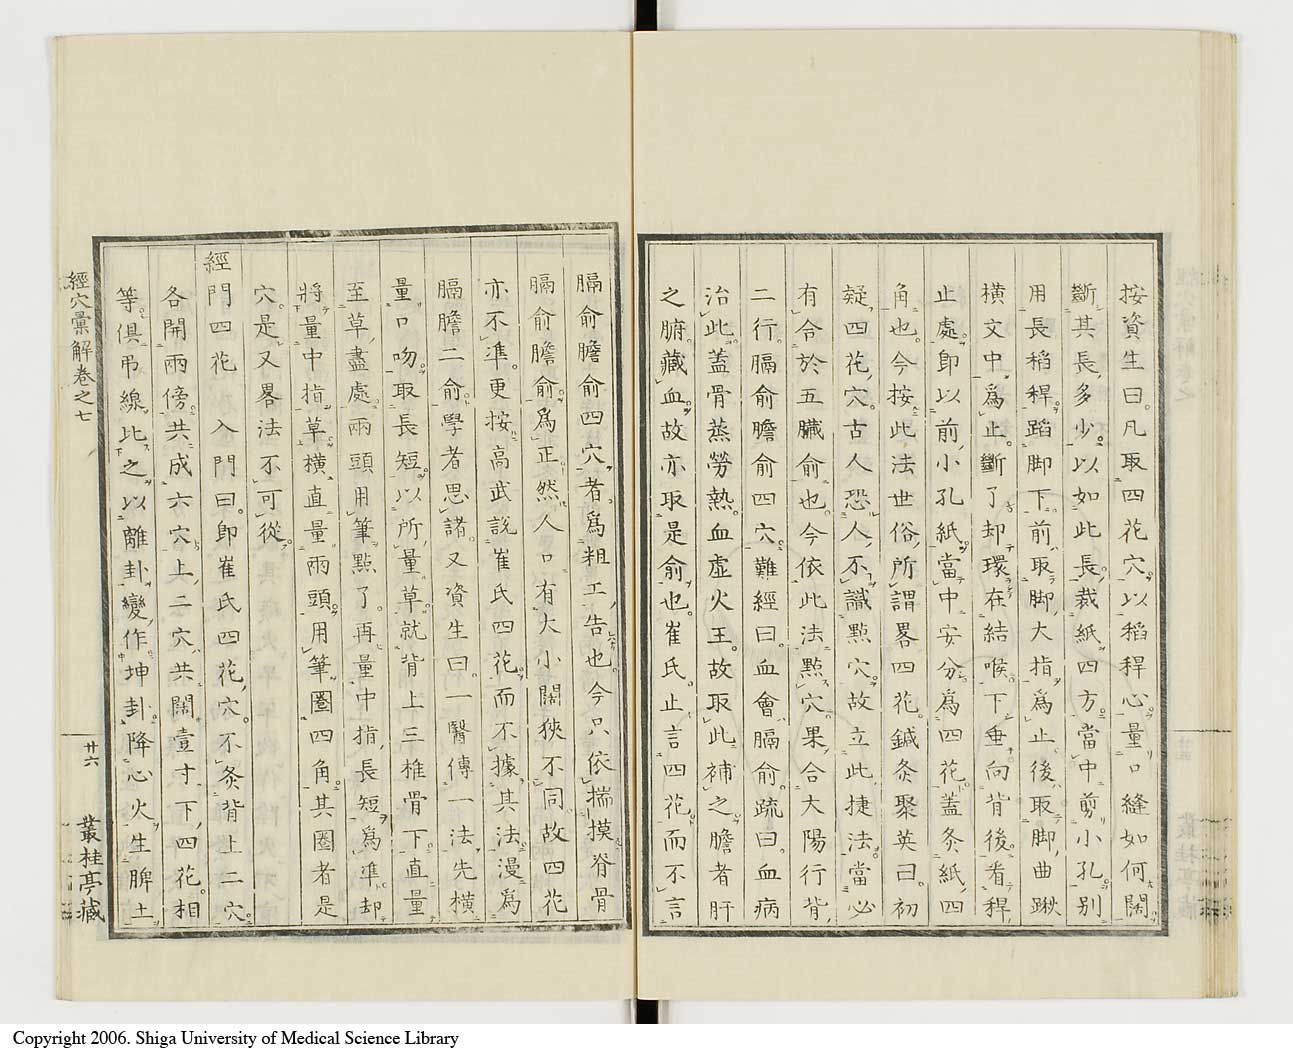 按資生曰凡取四花穴以稻稈心量口縫如何闊
斷其長多少以如此長裁紙四方當中剪小孔別
用長稻稈踏脚下前取脚大指爲止後取脚曲䐐
橫文中爲止斷了却環在結喉下垂向背後看稈
止處卽以前小孔紙當中安分爲四花蓋灸紙四
角也今按此法世俗所謂畧四花鍼灸聚英曰初
疑四花穴古人恐人不識點穴故立此捷法當必
有合於五臟俞也今依此法點穴果合大陽行背
二行膈俞膽俞四穴難經曰血會膈俞疏曰血病
治此蓋骨蒸勞熱血虛火王故取此補之膽者肝
之腑藏血故亦取是俞也崔氏止言四花而不言
膈俞膽俞四穴者爲粗工告也今只依揣摸脊骨
膈俞膽俞爲正然人口有大小闊狹不同故四花
亦不準更按高武說崔氏四花而不據其法漫爲
膈膽二俞學者思諸又資生曰一醫傳一法先橫
量口吻取長短以所量草就背上三椎骨下直量
至草盡處兩頭用筆點了再量中指長短爲準却
將量中指草橫直量兩頭用筆圈四角其圈者是
穴是又畧法不可從
經門四花 入門曰卽崔氏四花穴不灸背上二穴
各開兩傍共成六穴上二穴共闊壹寸下四花相
等俱吊線比之以離卦變作坤卦降心火生脾土
經穴彙解卷之七
廿六
叢桂亭藏
Copyright 2006. Shiga University of Medical Science Library